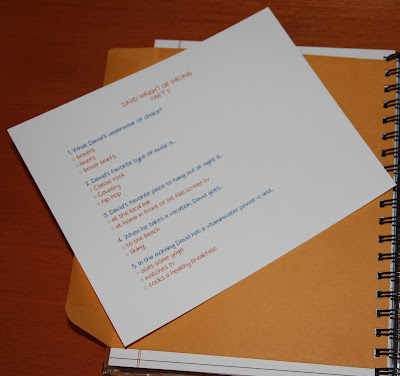 DAVID WRIGHT OR WRONG
PART 2
1. What David's underwear of choice?
○ boxers
○ briefs
○ boxer briefs
2. David's favorite type of music is...
○ Classic rock
○ Country
○ hip hop
3. David's favorite place to hang out at night is...
○ at the local bar
○ at home in front of his flat screen tv
4. When he takes a vacation, David goes...
○ to the beach
○ skiing
5. In the morning David has a vitaminwater power-c and...
○ does some yoga
○ watches tv
○ cooks a healthy breakfast